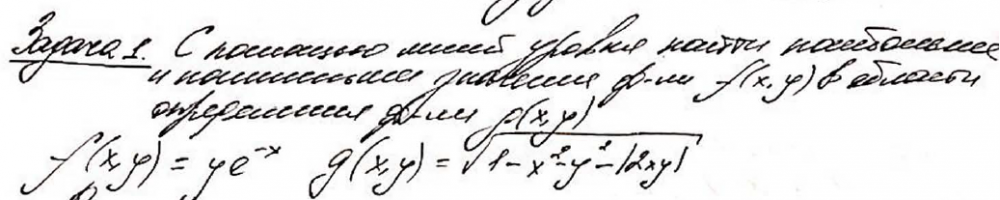 Задача 1. С помощью линий уровня найти наибольшее
и наименьшее значения ф-ии f(x,y) в области
определения ф-ии g(x,y)
f(x,y) = ye^{-x} g(x,y) = √(1-x²-y²-|2xy|)